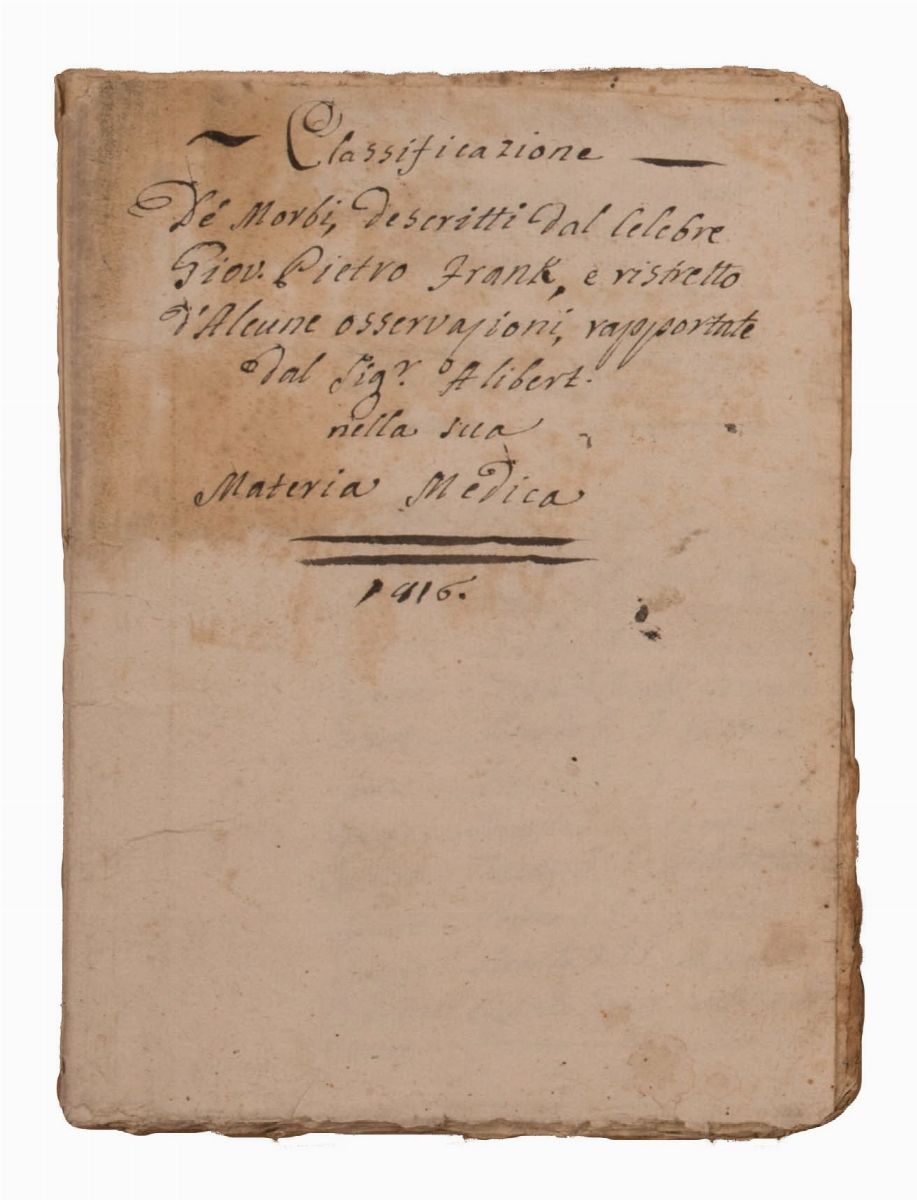 ~ Classificazione —
De' Morbi, descritti dal celebre
Giov. Pietro Frank, e ristretto
d'Alcune osservazioni, rapportate
dal Sigr. Alibert.
nella sua
Materia Medica
1816.